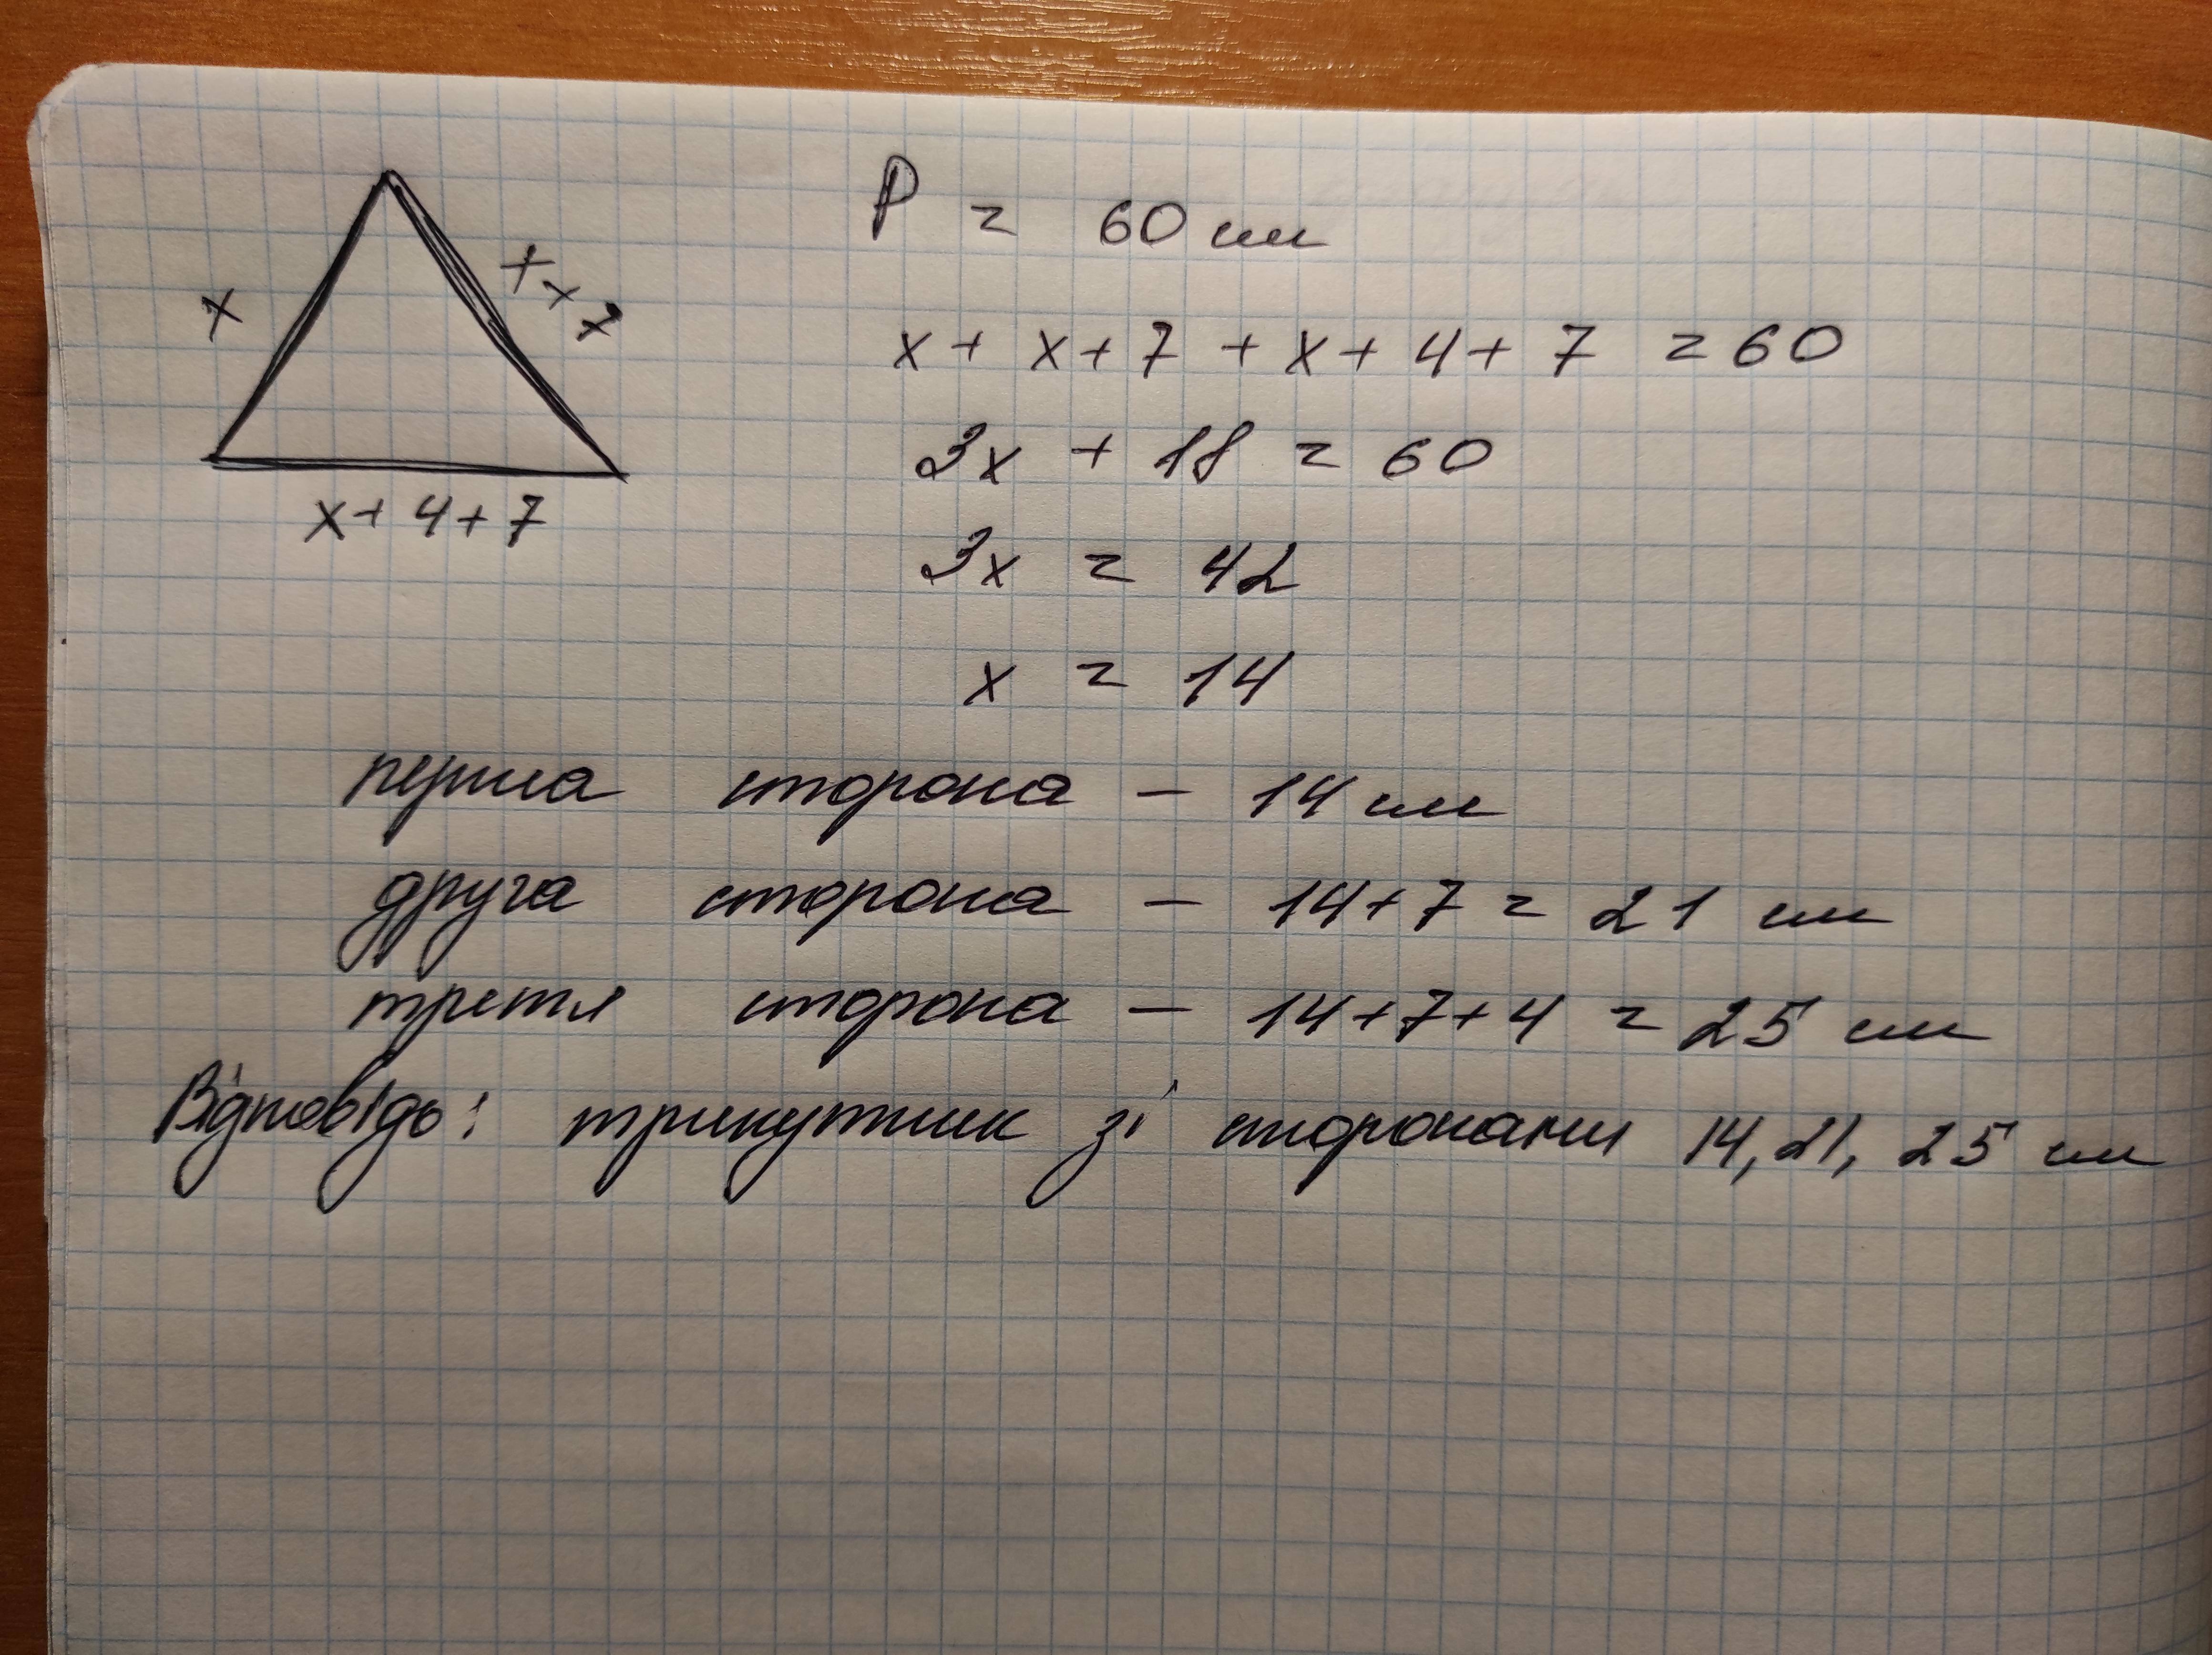 x
x + 7
x + 4 + 7
P = 60 см
x + x + 7 + x + 4 + 7 = 60
3x + 18 = 60
3x = 42
x = 14
перша сторона - 14 см
друга сторона - 14 + 7 = 21 см
третя сторона - 14 + 7 + 4 = 25 см
Відповідь: трикутник зі сторонами 14, 21, 25 см